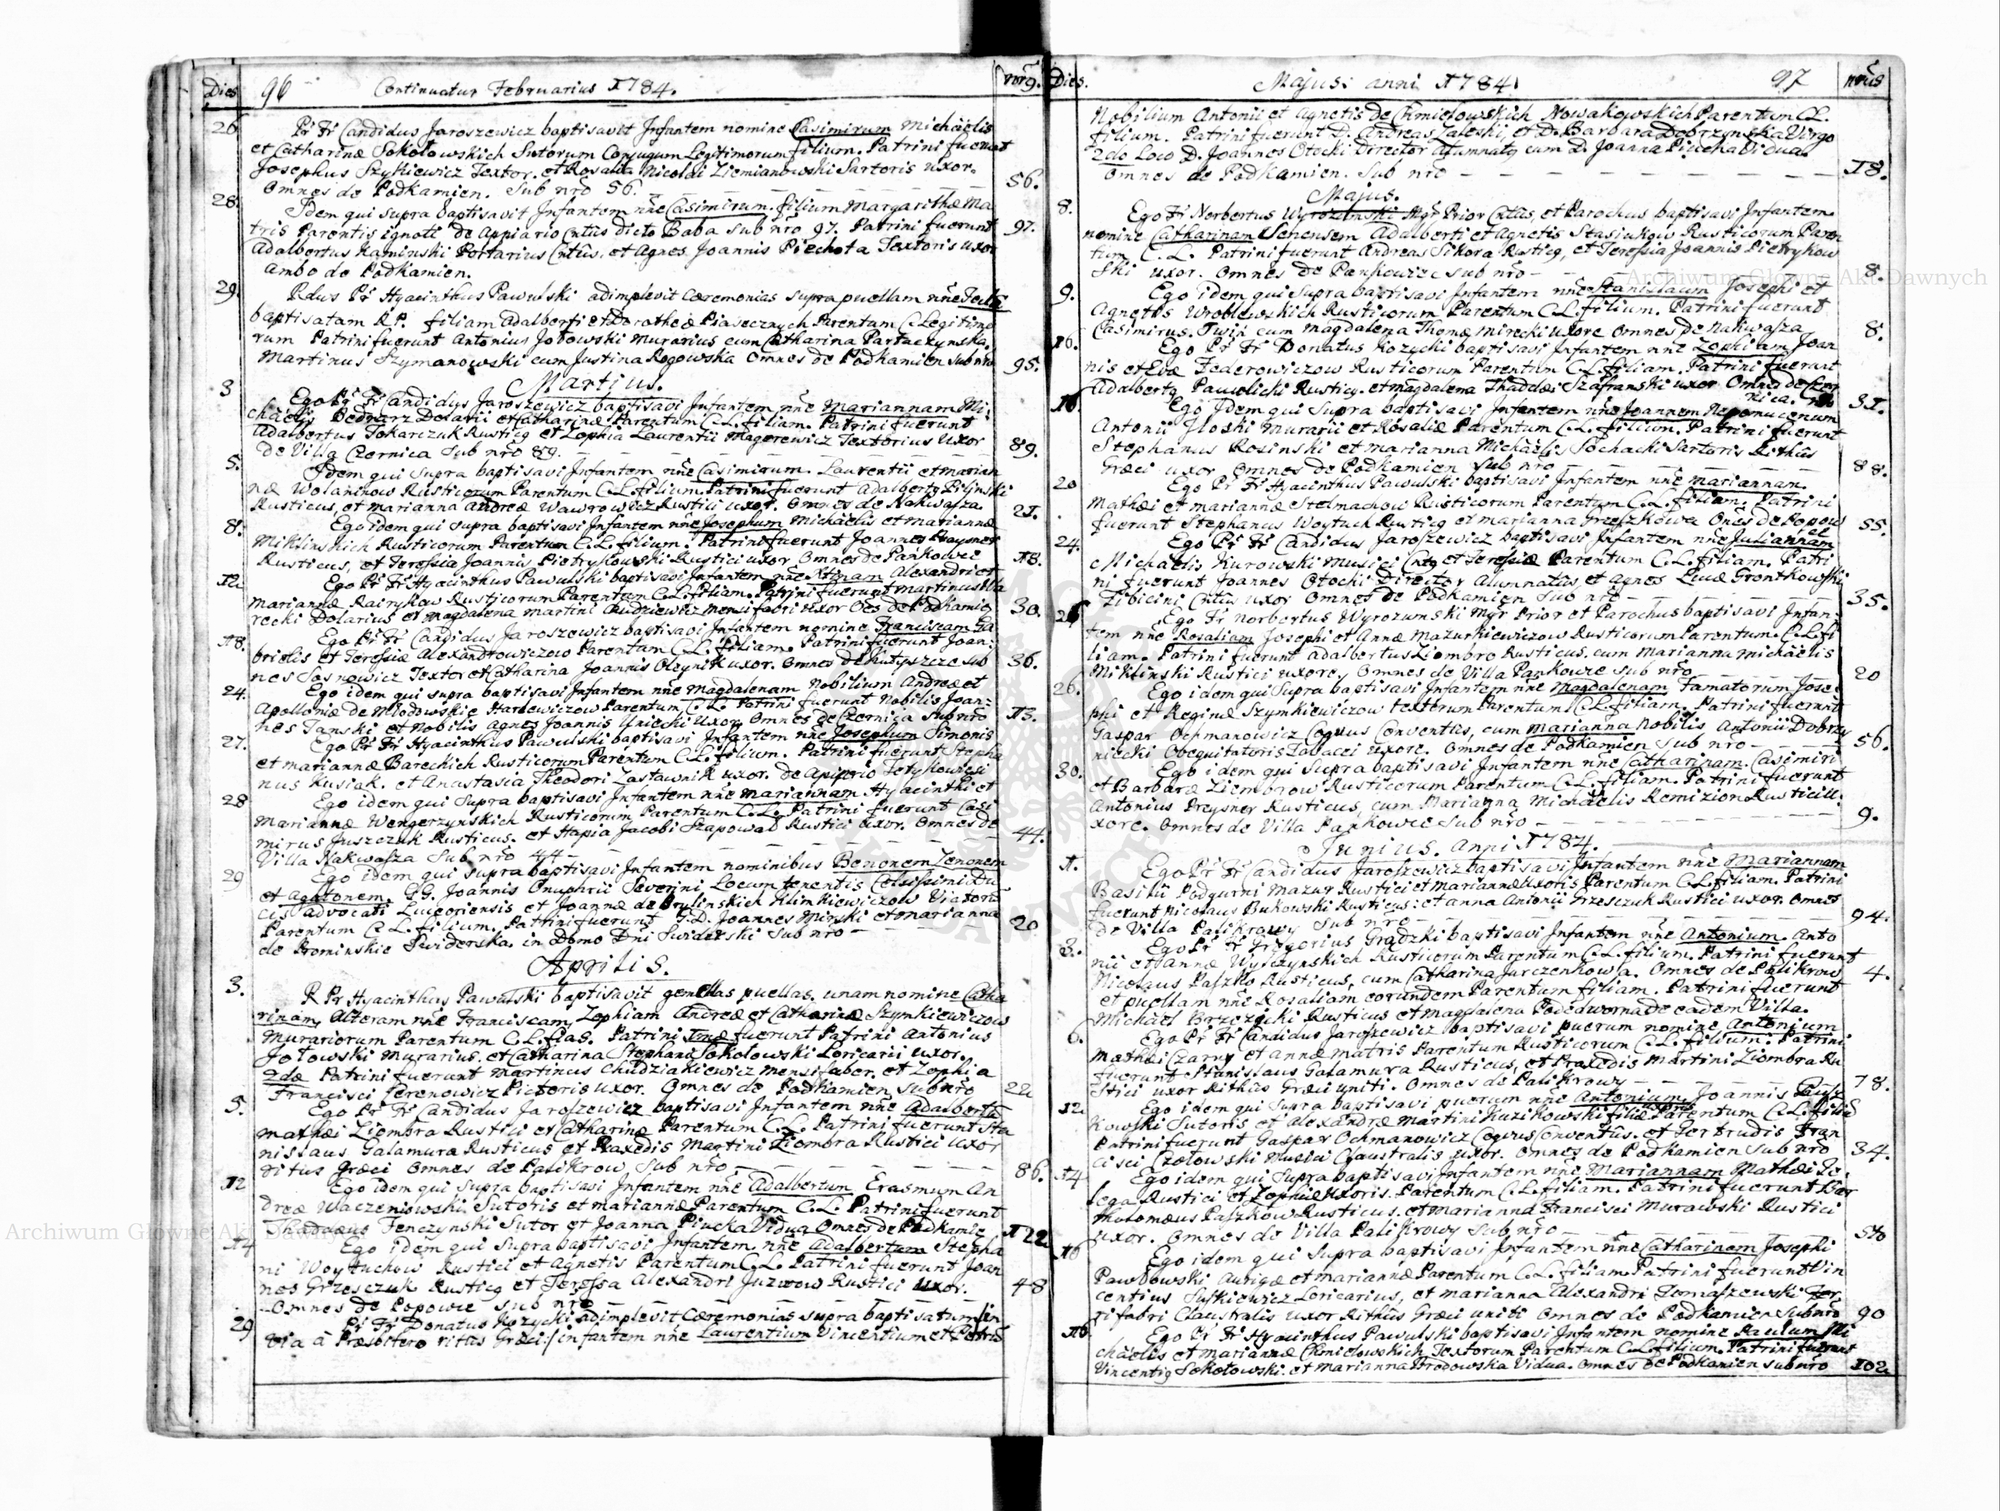 Dies 96 Continuatur Februarius 1784. nrg.
26. Pr Fr Candidus Jaroszewicz baptisavit Infantem nomine Casimirum Michaelis
et Catharinæ Sokołowskich Sutorum Conjugum Legitimorum filium. Patrini fuerunt
Josephus Szytkiewicz Textor. et Rosalia Nicolai Ziemianowski Sartoris uxor.
Omnes de Podkamien. Sub nro 56. 56.
28. Idem qui supra baptisavit Infantem nne Casimirum. filium Margarithæ Ma
tris Parentis ignoti de Appiario Cntûs dicto Baba sub nro 97. Patrini fuerunt 97.
Adalbertus Kaminski Portarius Cntûs, et Agnes Joannis Piechota Textoris uxor
ambo de Podkamien.
29. Rdus Pr Hyacinthus Pawulski adimplevit Cæremonias supra puellam nne
baptisatam R.P. filiam Adalberti et Dorotheæ Piasecznych Parentum C. Legitimo
rum Patrini fuerunt Antonius Jotowski Murarius cum Catharina
Martinus Szymanowski cum Justina Rogowska Omnes de Podkamien sub nro 95.
Martius.
3 Ego Pr Fr Candidus Jaroszewicz baptisavi Infantem nne Mariannam Mi
chaelis Bednarz Dolarii et Catharinæ Parentum C.L. filiam. Patrini fuerunt
Adalbertus Tokarczuk Rusticg et Zophia Laurentii Magerewicz Textorius Uxor
de Villa Czernica Sub nro 89. 89.
5. Idem qui supra baptisavi Infantem nne Casimirum. Laurentii et Marian
næ Wolaninow Rusticorum Parentum C.L. filium. Patrini fuerunt Adalbertg Pilinski
Rusticus, et Marianna Andreæ Wawrowicz Rustici uxor. Omnes de Nakwasza 21.
8. Ego idem qui supra baptisavi Infantem nne Josephum Michaelis et Mariannæ
Miklinskich Rusticorum Parentum C.L. filium. Patrini fuerunt Joannes Praysner
Rusticus, et Teressia Joannis Pietrykowski Rustici uxor Omnes de Pankowce 18.
12. Ego Pr Fr Hyacinthus Pawulski baptisavi Infantem nne Xtinam Alexandri et
Mariannæ Rusticorum Parentum C.L. filiam. Patrini fuerunt Martinus
recki Dolarius et Magdalena Martini Chudziewicz Mensifabri uxor Oes de Podkamie 30.
18. Ego Pr Fr Candidus Jaroszewicz baptisavi Infantem nomine Franciscam Ga
brielis et Teressiæ Alexandrowiczow Parentum C.L. filiam. Patrini fuerunt Joan:
nes Sosnowicz Textor et Catharina Joannis Oleynik uxor. Omnes de Hutyszcze sub 36.
24. Ego idem qui supra baptisavi Infantem nne Magdalenam Nobilium Andreæ et
Apolloniæ de Młodowskie Harlewiczow Parentum C.L. Patrini fuerunt Nobilis Joan:
nes Tanski et Nobilis Agnes Joannis Uniecki uxor. Omnes de Czernica Sub nro 13.
27. Ego Pr Fr Hyacinthus Pawulski baptisavi Infantem nne Josephum Simonis
et Mariannæ Bareckich Rusticorum Parentum C.L. filium. Patrini fuerunt Stepha
nus Kusiak. et Anastasia Theodori Zastawnik uxor. de
28 Ego idem qui supra baptisavi Infantem nne Mariannam Hyacinthi et
Mariannæ Wengerzynskich Rusticorum Parentum C.L. Patrini fuerunt Casi
mirus Juszczuk Rusticus. et Hapia Jacobi Szapował Rustici uxor. Omnes de 44.
Villa Nakwasza Sub nro 44
29 Ego idem qui supra baptisavi Infantem nominibus Benonem Zenonem
et Agatonem. G.G. Joannis Onuphrii Severini Locum tenentis Celsissimi Du
cis Advocati Luceoriensis et Joannæ de Brylinskich Klimkiewiczow
Parentum C.L. filium. Patrini fuerunt G.D. Joannes Mirski et Marianna 20
de Prominskie Swiderska. in Domo Dni Swiderski sub nro
Aprilis.
3. R Pr Hyacinthus Pawulski baptisavit gemellas puellas. unam nomine Catha
rinam, Alteram nne Franciscam Zophiam Andreæ et Catharinæ Szymkiewiczow
Murariorum Parentum C.L. fias. Patrini 1mæ fuerunt Patrini Antonius
Jotowski Murarius. et Catharina Stephani Sokołowski Loricarii uxor.
2dæ Patrini fuerunt Martinus Chudziakiewicz Mensifaber. et Zophia
Francisci Jerenowicz Pictoris uxor. Omnes de Podkamien sub nro 22
5. Ego Pr Fr Candidus Jaroszewicz baptisavi Infantem nne Adalbertū
Mathæi Ziembra Rustici et Catharinæ Parentum C.L. Patrini fuerunt Sta
nislaus Galamura Rusticus et Praxedis Martini Ziombra Rustici uxor
ritus Græci Omnes de Palikrow, sub nro 86.
12 Ego idem qui supra baptisavi Infantem nne Adalbertum Erasmum An
dreæ Waczeniowski Sutoris et Mariannæ Parentum C.L. Patrini fuerunt
Thaddæus Fenczynski Sutor et Joanna Piucka Vidua Omnes de Podkamie 122
14 Ego idem qui supra baptisavi Infantem nne Adalbertum Stepha
ni Woytuchow Rustici et Agnetis Parentum C.L. Patrini fuerunt Joan
nes Grzesczuk Rusticg et Teressa Alexandri Juzwow Rustici uxor. 48
Omnes de Popowce sub nro
29 Pr Fr Donatus Kozycki adimplevit Cæremonias supra baptisatum
à Præsbitero ritus Græci infantem nne Laurentium Vincentium et
Dies. Majus: anni 1784. 97 nrus
Nobilium Antonii et Agnetis de Chmielowskich Nowakowskich Parentum C.L.
filium. Patrini fuerunt D. Andreas Zaleski, et D. Barbara Dobrzynska Virgo
2do Loco D. Joannes Otocki Director Alumnatg cum D. Joanna Piucka Vidua.
Omnes de Podkamien. Sub nro 18.
Majus.
8. Ego Fr Norbertus Wyrozinski Mgr Prior Cntûs, et Parochus baptisavi Infantem
nomine Catharinam Senensem Adalberti et Agnetis Stasiukow Rusticorum Paren
tum C.L. Patrini fuerunt Andreas Sikora Rusticg, et Teressia Joannis Pietrykow
ski uxor. Omnes de Penkowice sub nro 8.
9. Ego idem qui supra baptisavi Infantem nne Stanislaum Josephi et
Agnetis Wroblewskich Rusticorum Parentum C.L. filium. Patrini fuerunt
Casimirus. cum Magdalena Thomæ Mirecki Uxore Omnes de Nakwasza 8.
16. Ego Pr Fr Donatus Kozycki baptisavi Infantem nne Zophiam Joan
nis et Evæ Federowiczow Rusticorum Parentum C.L. filiam. Patrini fuerunt
Adalbertg Pawelicki Rusticg. et Magdalena Thaddæi Szafranski uxor Omnes de Czer
nica. 31.
16. Ego Idem qui supra baptisavi Infantem nne Joannem Nepomucenum
Antonii Iloski Murarii et Rosaliæ Parentum C.L. filium. Patrini fuerunt
Stephanus Rosinski et Marianna Michaelis Sochacki Sartoris Rithûs
Græci uxor Omnes de Podkamien sub nro 88.
20 Ego Pr Fr Hyacinthus Pawulski baptisavi Infantem nne Mariannam.
Mathæi et Mariannæ Stelmachow Rusticorum Parentum C.L. filiam. Patrini
fuerunt Stephanus Woytuch Rusticg et Marianna Grzeszkowa Ones de Popow 55.
24. Ego Pr Fr Candidus Jaroszewicz baptisavi Infantem nne Juliannam
Michaelis Kurowski Musici Cntg et Teressiæ Parentum C.L. filiam. Patri
ni fuerunt Joannes Otocki Director Alumnatûs et Agnes Lucæ Grontkowski
Tibicini Cntûs uxor Omnes de Podkamien Sub nro 35.
26 Ego Fr Norbertus Wyrozumski Mgr Prior et Parochus baptisavi Infan:
tem nne Rosaliam Josephi et Annæ Mazurkiewiczow Rusticorum Parentum. C.L. fi
liam. Patrini fuerunt Adalbertus Ziombro Rusticus. cum Marianna Michaelis
Miklinski Rustici uxore, Omnes de Villa Pankowce sub nro 20
26. Ego idem qui supra baptisavi Infantem nne Magdalenam Famatorum Jose
phi et Reginæ Szymkiewiczow textorum Parentum C.L. filiam. Patrini fuerunt
Gaspar Ochmanowicz Coquus Conventûs, cum Marianna Nobilis Antonii Dobrzy
niecki Obequitatoris Tabacei Uxore. Omnes de Podkamien sub nro 56.
30. Ego idem qui supra baptisavi Infantem nne Catharinam. Casimiri
et Barbaræ Ziembrow Rusticorum Parentum C.L. filiam. Patrini fuerunt
Antonius Preysner Rusticus, cum Marianna Michaelis Remizion Rustici
xore. Omnes de Villa Pankowce sub nro 9.
Junius. Anni 1784.
1. Ego Pr Fr Candidus Jaroszewicz baptisavi Infantem nne Mariannam
Basilii Podgurni Mazur Rustici et Mariannæ Uxoris Parentum C.L. filiam. Patrini
fuerunt Nicolaus Bukowski Rusticus: et Anna Antonii Grzesczuk Rustici uxor. Omnes
de Villa Palikrowy sub nro 94.
3. Ego Pr Fr Gregorius Gradzki baptisavi Infantem nne Antonium. Anto
nii et Annæ Wyrczynskich Rusticorum Parentum C.L. filium. Patrini fuerunt
Nicolaus Paszko Rusticus, cum Catharina Jurczenkowa. Omnes de Palikrow 4.
et puellam nne Rosaliam eorundem Parentum filiam. Patrini fuerunt
Michael Brzezicki Rusticus et Magdalena Podedworna de eadem Villa.
6. Ego Pr Fr Candidus Jaroszewicz baptisavi puerum nomine Antonium
Mathæi Czarny et Annæ Matris Parentum Rusticorum C.L. filium. Patrini
fuerunt Stanislaus Galamura Rusticus, et Praxedis Martini Ziombra Ru
stici uxor Rithûs Græci uniti. Omnes de Palikrowy 78.
12. Ego idem qui supra baptisavi puerum nne Antonium Joannis
kowski Sutoris et Alexandræ Martini Kuzikowski filiæ Parentum C.L. filiū
Patrini fuerunt Gaspar Ochmanowicz Coquus Conventûs. et Gertrudis Fran
cisci Czołowski Musici Claustralis uxor. Omnes de Podkamien sub nro 34.
14 Ego idem qui supra baptisavi Infantem nne Mariannam Mathæi
lega Rustici et Zophiæ Uxoris. Parentum C.L. filiam. Patrini fuerunt Bar
tholomæus Paszkow Rusticus. et Marianna Francisci Murawski Rustici
uxor. Omnes de Villa Palikrowy sub nro
16 Ego idem qui supra baptisavi Infantem nne Catharinam Josephi
Pawłowski Aurigæ et Mariannæ Parentum C.L. filiam Patrini fuerunt Vin
centius Juszkiewicz Loricarius, et Marianna Alexandri Tomaszewski Fer
ri fabri Claustralis uxor Rithûs Græci uniti Omnes de Podkamien sub nro 90
16 Ego Pr Fr Hyacinthus Pawulski baptisavi Infantem nomine Paulum Mi
chaelis et Mariannæ Chmielowskich Textorum Parentum C.L. filium. Patrini fuerunt
Vincentig Sokołowski. et Marianna Hredowska Vidua. Omnes de Podkamien sub nro 102
Archiwum Główne Akt Dawnych
Archiwum Główne Akt Dawnych